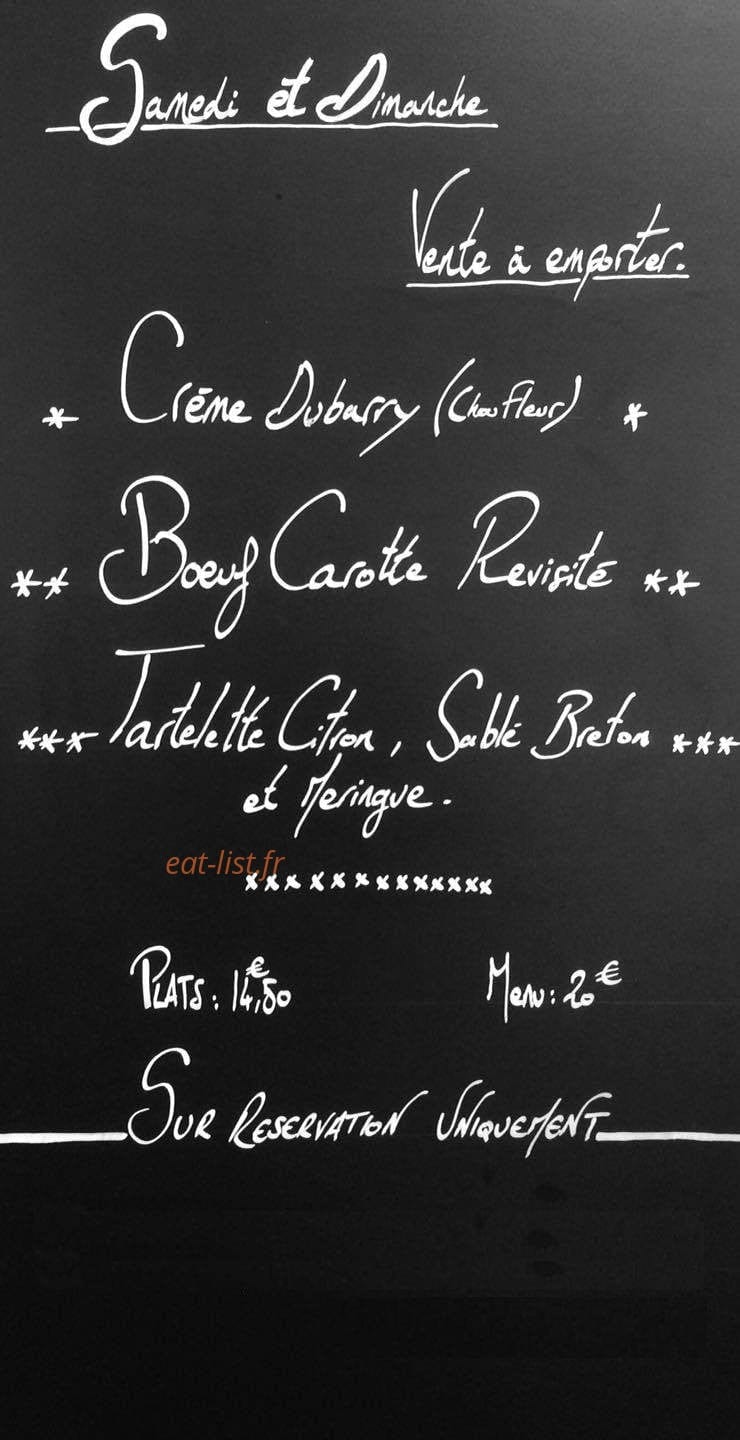 Samedi et Dimanche
Vente à emporter.
* Crème Dubarry (Chou Fleur) *
** Boeuf Carotte Revisité **
*** Tartelette Citron, Sablé Breton ***
et Meringue.
eat-list.fr
xxxxxxxxxxxxx
PLATS : 14,50€ Menu : 20€
SUR RESERVATION UNIQUEMENT